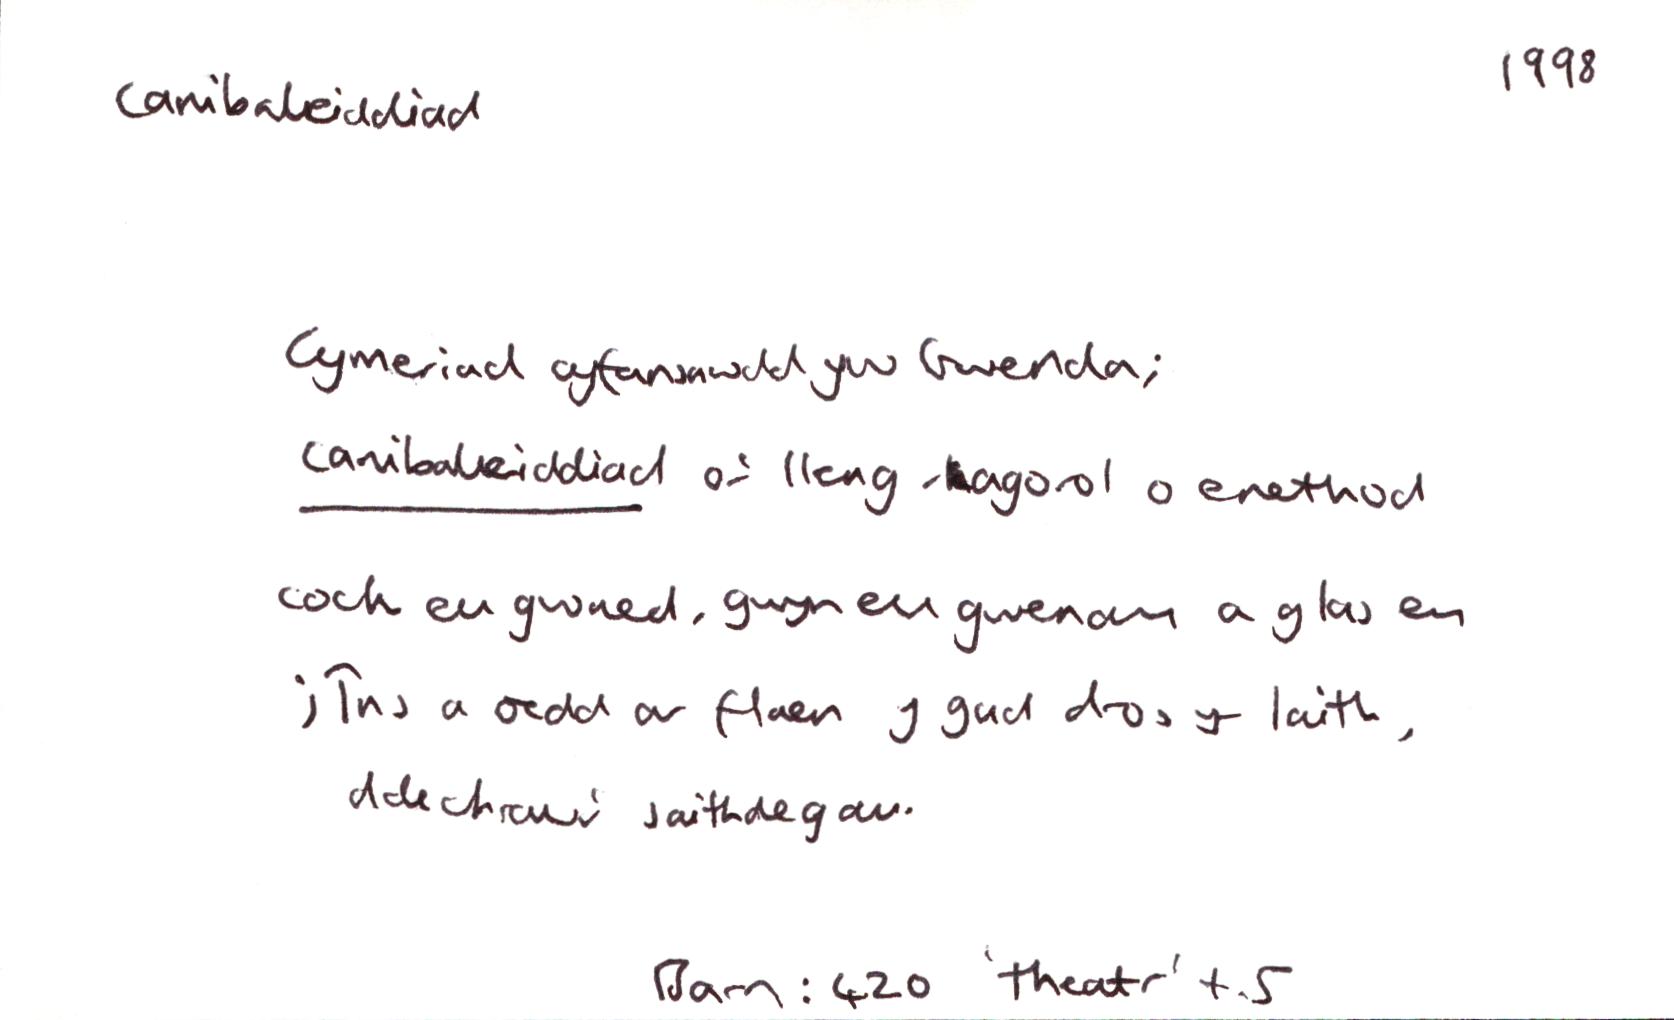 canibaleiddiad
1998
Cymeriad cyfansawdd yw Gwenda;
canibaleiddiad o'r lleng ragorol o enethod
coch eu gwaed, gwyn eu gwenau a glas eu
jîns a oedd ar flaen y gad dros yr Iaith,
ddechrau'r saithdegau.
Barn: 420 'theatr' t.5